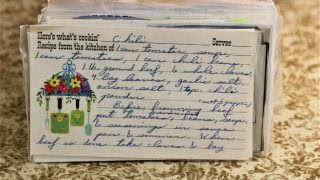 Here's what's cookin' Chili Serves
Recipe from the kitchen of 1 can tomato soup,
1 can tomatoes, 1 can chili beans,
1 lb. ground beef, 6 whole cloves,
4 Bay leaves, garlic salt,
onion salt, 1 tsp. chili
powder.
Before browning beef
put tomatoes, beans, soup,
& seasonings in soup
pan & simmer. When
beef is done take cloves & bay